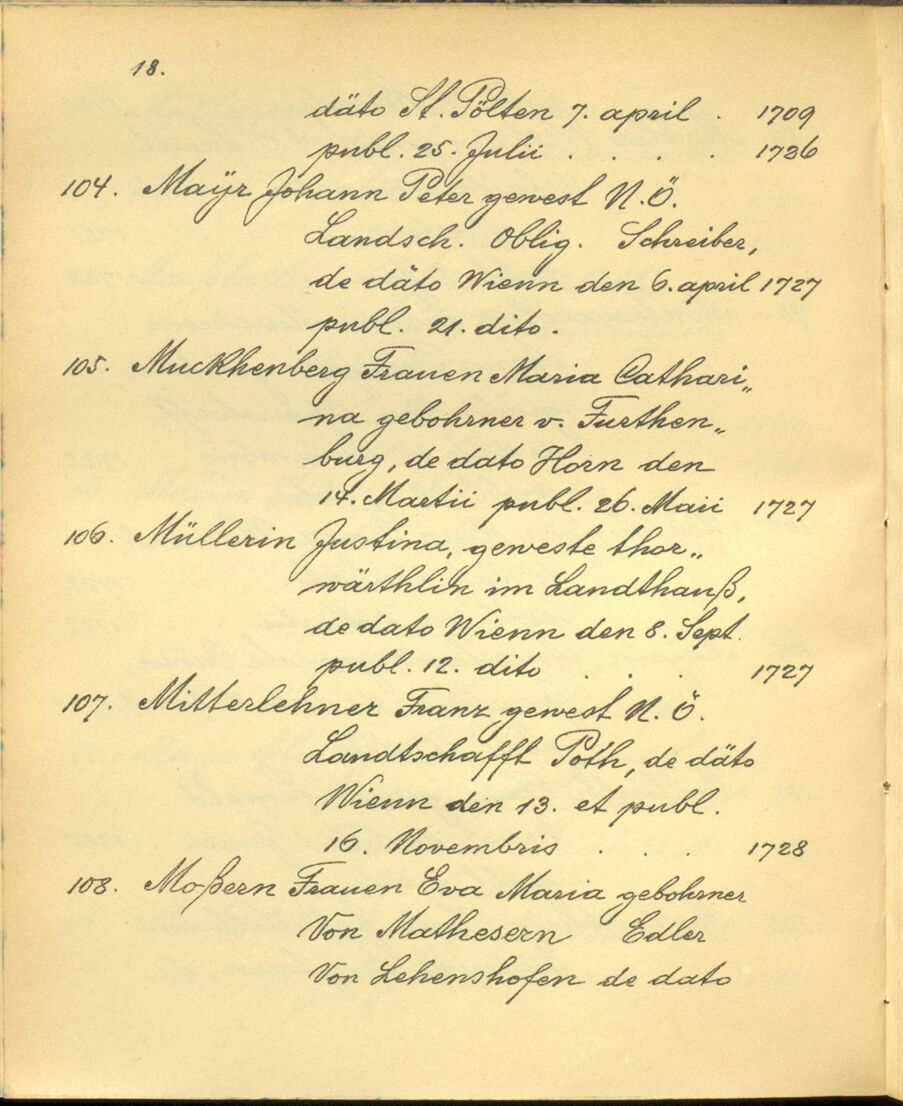 18.
däto St. Pölten 7. april . 1709
publ. 25. Julii . . . . 1726
104. Maÿr Johann Peter gewest N.Ö.
Landsch. Oblig. Schreiber,
de däto Wienn den 6. april 1727
publ. 21. dito.
105. Muckhenberg Frauen Maria Cathari„
na gebohrner v. Furthen„
burg, de dato Horn den
14. Martii publ. 26. Maii 1727
106. Müllerin Justina, geweste thor„
wärthlin im Landthauß,
de dato Wienn den 8. Sept.
publ. 12. dito . . . 1727
107. Mitterlehner Franz gewest N.Ö.
Landtschafft Poth, de däto
Wienn den 13. et publ.
16. Novembris . . . 1728
108. Moßern Frauen Eva Maria gebohrner
Von Mathesern Edler
Von Lehenshofen de dato